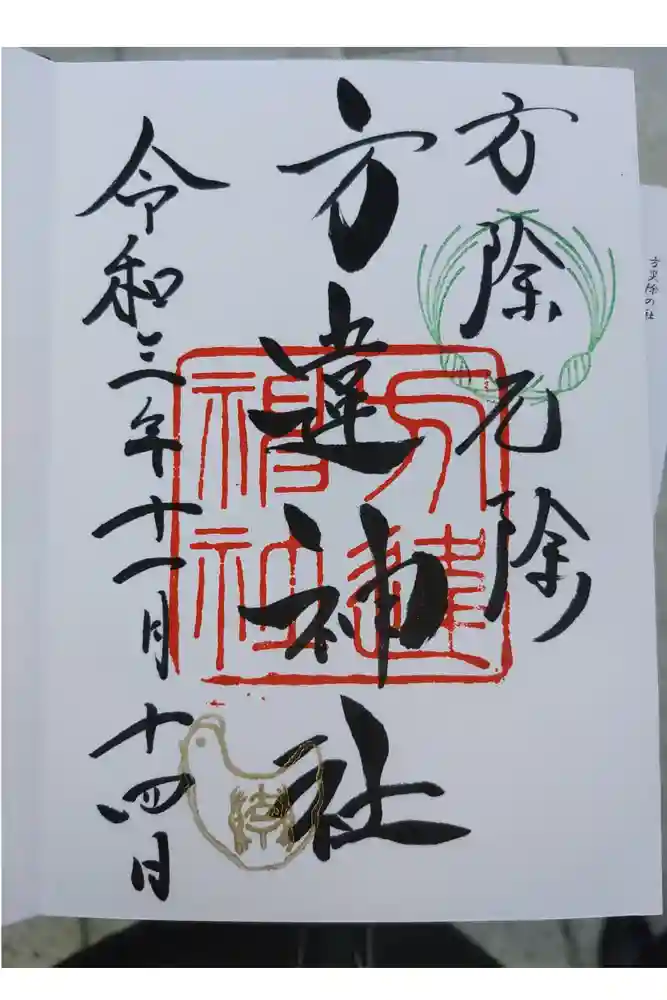 方除厄除
方違神社
令和三年十一月十四日
方違
神社
方災除の社